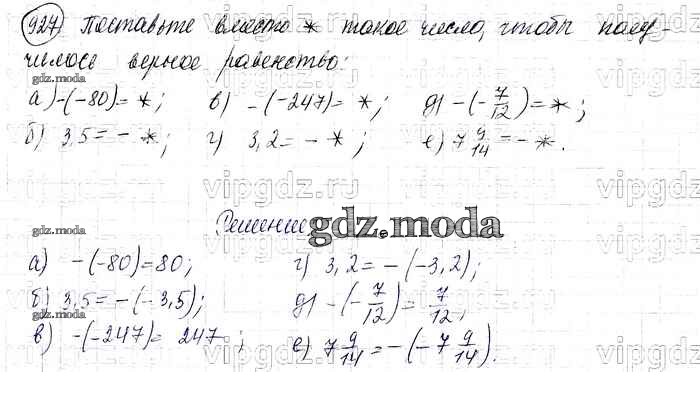 927 Поставьте вместо * такое число, чтобы полу-
чилось верное равенство:
gdz.moda
а) -(-80) = *; в) -(-247) = *; д) -(-7/12) = *;
б) 3,5 = - *; г) 3,2 = - *; е) 7 9/14 = - *.
vipgdz.ru vipgdz.ru vipgdz.ru
Решение
gdz.moda
gdz.moda
а) -(-80) = 80; г) 3,2 = -(-3,2);
б) 3,5 = -(-3,5); д) -(-7/12) = 7/12;
gdz.moda
в) -(-247) = 247; е) 7 9/14 = -(-7 9/14).
vipgdz.ru vipgdz.ru vipgdz.ru